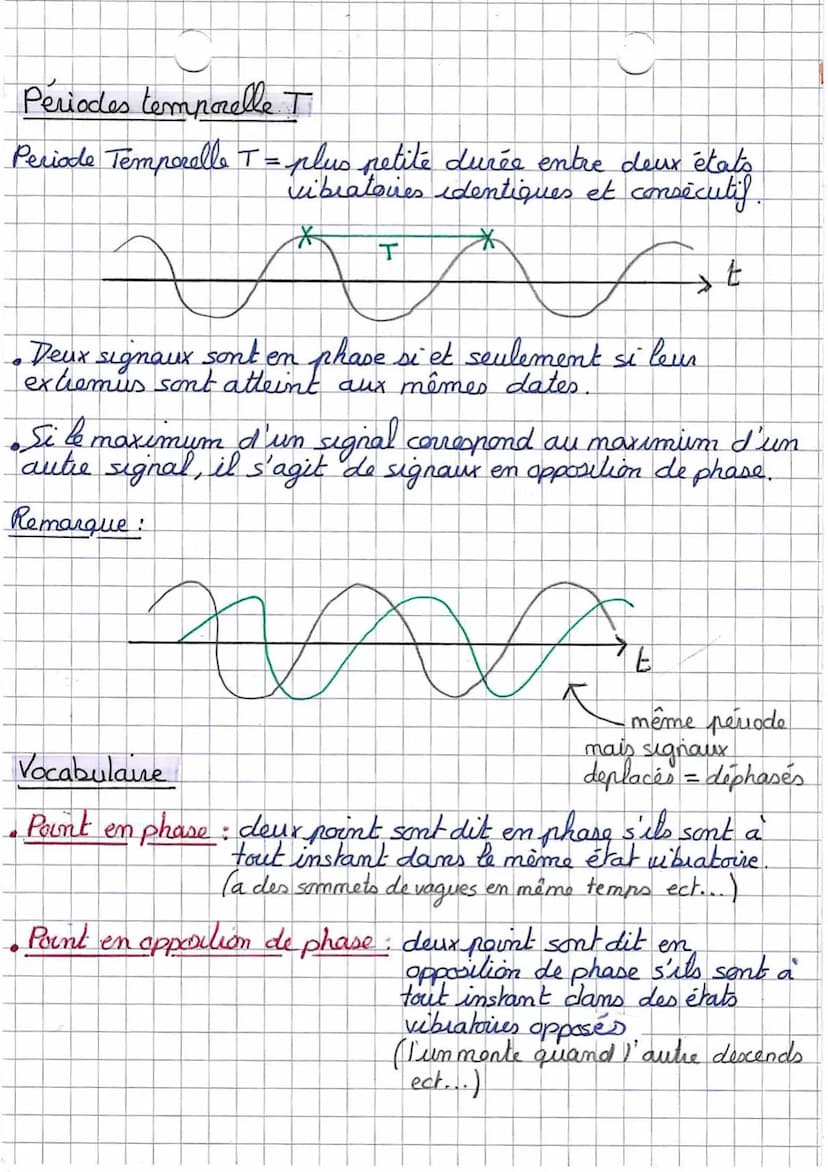 Périodes temporelle T
Periode Temporelle T = plus petite durée entre deux états
vibratoires identiques et consécutif.
T
t
. Deux signaux sont en phase si et seulement si leur
extremus sont atteint aux mêmes dates.
. Si le maximum d'un signal correspond au maximium d'un
autre signal, il s'agit de signaux en opposition de phase.
Remarque :
t
même période
mais signaux
deplacés = déphasés
Vocabulaire
. Point en phase : deux point sont dit en phase s'ils sont à
tout instant dans le même état vibratoire.
(a des sommets de vagues en même temps ect...)
. Point en opposition de phase : deux point sont dit en
opposition de phase s'ils sont à
tout instant dans des états
vibratoires opposés
(l'un monte quand l'autre descends
ect...)